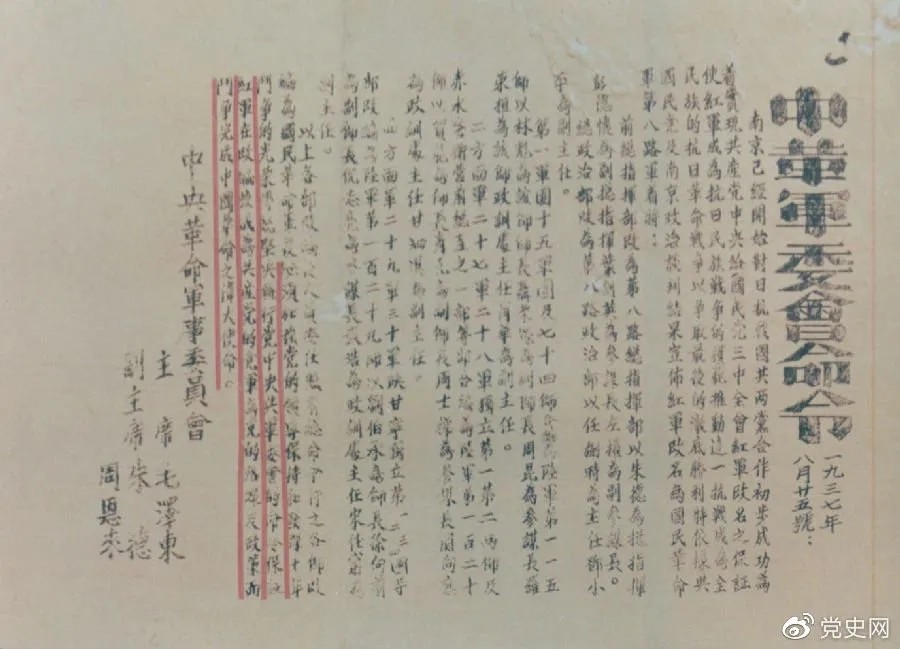 中革軍委會命令
一九三七年
八月廿五號：
南京已經開始對日抗戰國共兩黨合作初步成功為
着實現共產党中央給國民党三中全會紅軍改名之保証
使紅軍成為抗日民族戰爭的模範推動這一抗戰成為全
民族的抗日革命戰爭以爭取最後的澈底勝利特依據與
國民党及南京政治談判結果宣佈紅軍改名為國民革命
軍第八路軍着將：
前敵指揮部改為第八路總指揮部以朱德為總指揮
彭德懷為副總指揮葉劍英為參謀長左權為副參謀長。
總政治部改為第八路政治部以任弼時為主任鄧小
平為副主任。
第一軍團十五軍團及七十四師改為陸軍第一一五
師以林彪為該師師長聶榮臻為副師長周昆為參謀長羅
榮桓為該師政訓處主任蕭華為副主任。
二方面軍二十七軍二十八軍獨立第一第二兩師及
赤水警衛營前總直之一部等部合編為陸軍第一百二十
師以賀龍為師長蕭克為副師長周士第為參謀長關向應
為政訓處主任甘泗淇為副主任。
四方面軍二十九軍三十軍陝甘寧獨立第一二三四等
師改編為陸軍第一百二十九師以劉伯承為師長徐向前
為副師長倪志亮為參謀長張浩為政訓處主任宋任窮為
副主任。
以上各部改編後人員委任照前總命令行之各部改
編為國民革命軍後必須加強党的領導保持和發揚十年
鬥爭的光榮傳統堅決執行党中央與軍委會的命令保証
紅軍在改編後成為共產党的党軍為党的路線及政策而
鬥爭完成中國革命之偉大使命。
中央革命軍事委員會
主席毛澤東
副主席朱德
周恩來
党史网